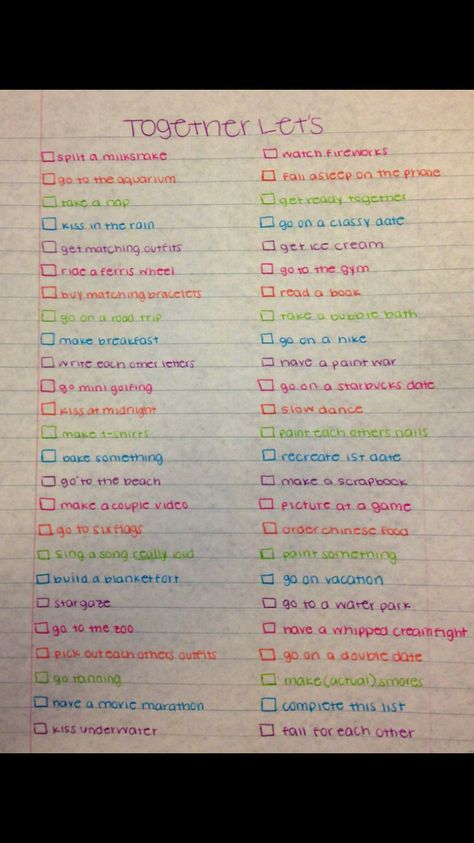 Together Let's
split a milkshake
go to the aquarium
take a nap
kiss in the rain
get matching outfits
ride a ferris wheel
buy matching bracelets
go on a road trip
make breakfast
write each other letters
go mini golfing
kiss at midnight
make t-shirts
bake something
go to the beach
make a couple video
go to six flags
sing a song really loud
build a blanket fort
stargaze
go to the zoo
pick out each others outfits
go tanning
have a movie marathon
kiss underwater
watch fireworks
fall asleep on the phone
get ready together
go on a classy date
get ice cream
go to the gym
read a book
take a bubble bath
go on a hike
have a paint war
go on a starbucks date
slow dance
paint each others nails
recreate 1st date
make a scrapbook
picture at a game
order chinese food
paint something
go on vacation
go to a water park
have a whipped cream fight
go on a double date
make (actual) smores
complete this list
fall for each other